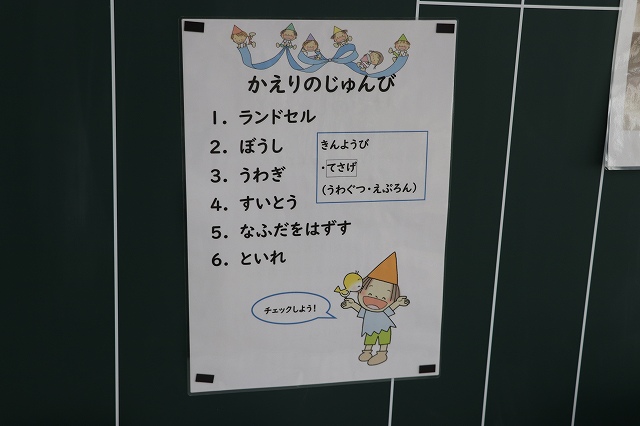 かえりのじゅんび
1. ランドセル
2. ぼうし
3. うわぎ
4. すいとう
5. なふだをはずす
6. といれ
きんようび
・てさげ
（うわぐつ・えぷろん）
チェックしよう！